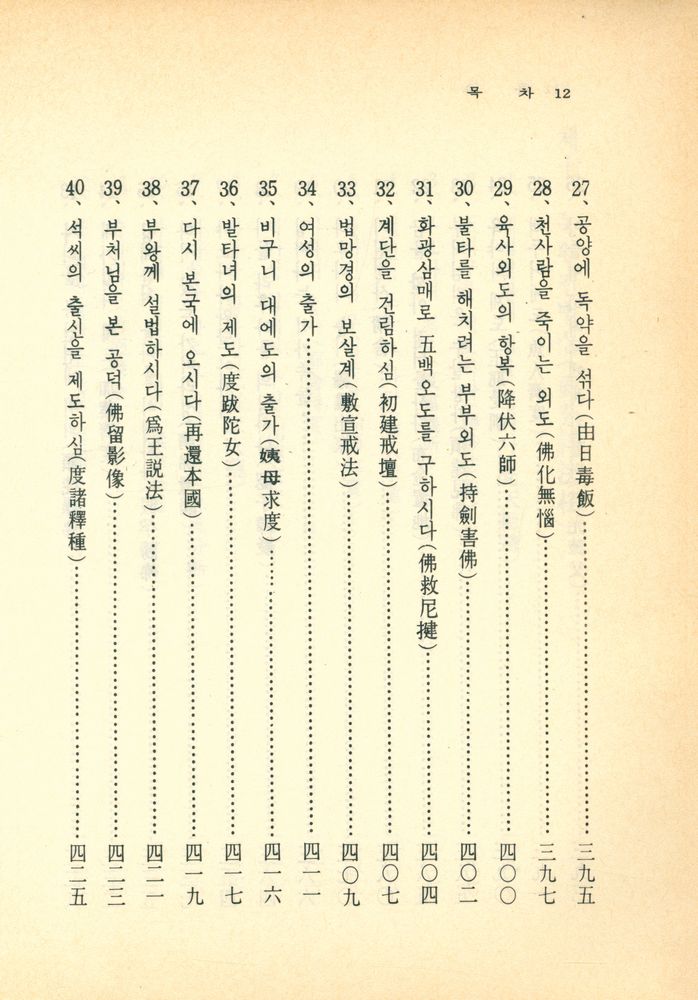 목 차 12
27、공양에 독약을 섞다(由日毒飯)……三九五
28、천사람을 죽이는 외도(佛化無惱)……三九七
29、육사외도의 항복(降伏六師)……四〇〇
30、불타를 해치려는 부부외도(持劍害佛)……四〇二
31、화광삼매로 五백오도를 구하시다(佛救尼揵)……四〇四
32、계단을 건림하심(初建戒壇)……四〇七
33、법망경의 보살계(敷宣戒法)……四〇九
34、여성의 출가……四一一
35、비구니 대에도의 출가(姨母求度)……四一六
36、발타녀의 제도(度跋陀女)……四一七
37、다시 본국에 오시다(再還本國)……四一九
38、부왕께 설법하시다(爲王説法)……四二一
39、부처님을 본 공덕(佛留影像)……四二三
40、석씨의 출신을 제도하심(度諸釋種)……四二五